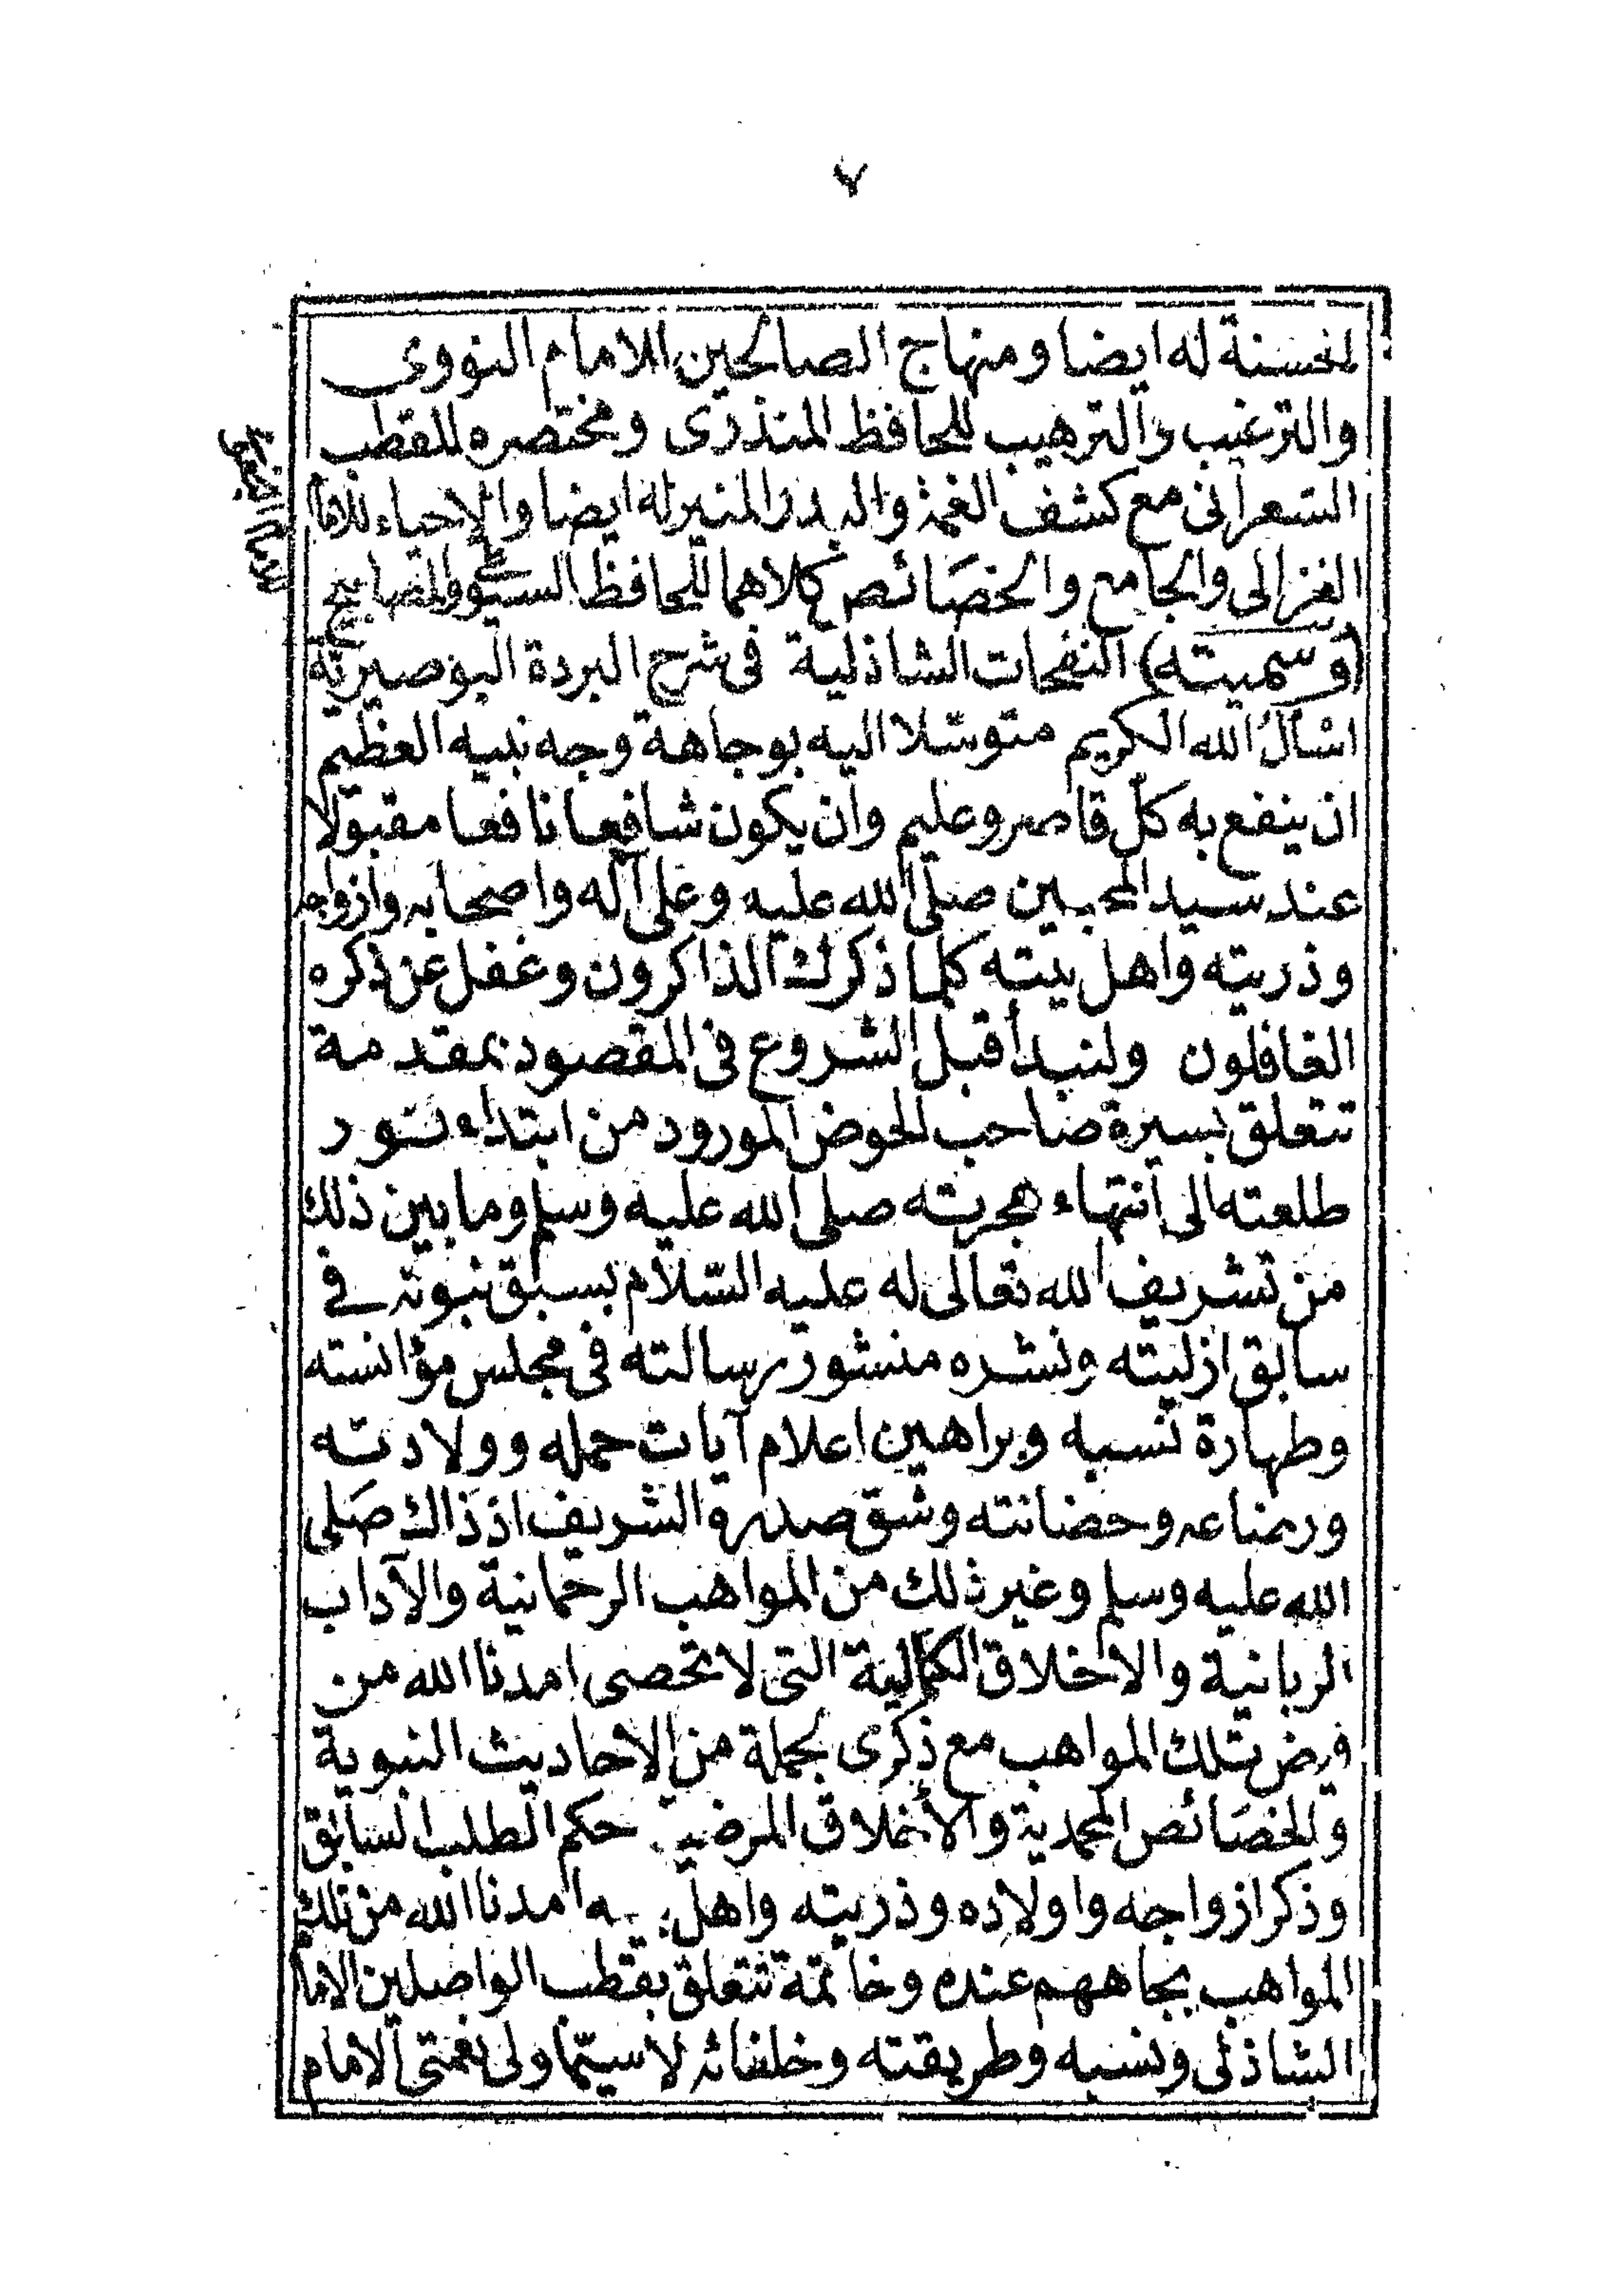 ٧
الحسنة له ايضا ومنهاج الصالحين للامام النووى
والترغيب والترهيب للحافظ المنذرى ومختصره للقطب
الشعرانى مع كشف الغمة والبدر المنير له ايضا والاحياء للامام
الغزالى والجامع والخصَائص كلاهما للحافظ السيوطى والمصابيح
(وسميته) النفحات الشاذلية فى شرح البردة البوصيرية
اسْألُ الله الكريم متوسّلا اليه بوجاهة وجه نبيه العظيم
ان ينفع به كلّ قاصر وعليم وان يكون شافعا نافعا مقبولا
عند سيد المحبين صلى الله عليه وعلى آله واصحابه وازواجه
وذريته واهل بيته كلما ذكرك الذاكرون وغفل عن ذكره
الغافلون ولنبدأ قبل الشروع فى المقصود بمقدمة
تتعلق بسيرة صاحب الحوض المورود من ابتداء نور
طلعته الى انتهاء هجرته صلى الله عليه وسلم وما بين ذلك
من تشريف الله تعالى له عليه السّلام بسبق نبوته فى
سابق ازليته ونشره منشور رسالته فى مجلس مؤانسته
وطهارة نسبه وبراهين اعلام آيات حمله وولادته
ورضاعه وحضانته وشقّ صدره الشريف اذ ذاك صَلى
الله عليه وسلم وغير ذلك من المواهب الرحمانية والآداب
الربانية والاخلاق الكمالية التى لا تحصى امدنا الله من
فيض تلك المواهب مع ذكرى لجملة من الاحاديث النبوية
والخصَائص المحمدية والأخلاق المرضية حكم الطلب السابق
وذكر ازواجه واولاده وذريته واهل امدنا الله من تلك
المواهب بجاههم عنده وخاتمة تتعلق بقطب الواصلين الامام
الشاذلى ونسبه وطريقته وخلفائه لا سيّما ولى نعمتى الامام